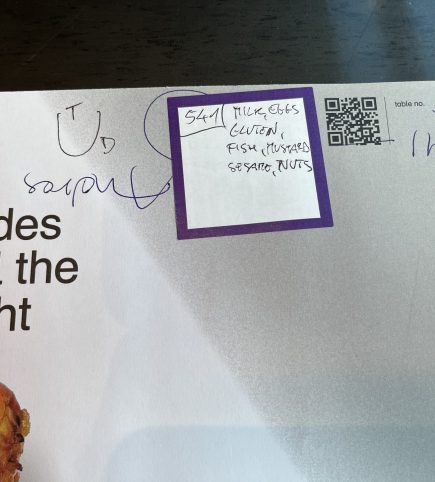 T
U
D
541 MILK, EGGS
GLUTEN,
FISH, MUSTARD
SESAME, NUTS
table no.
des
the
ht